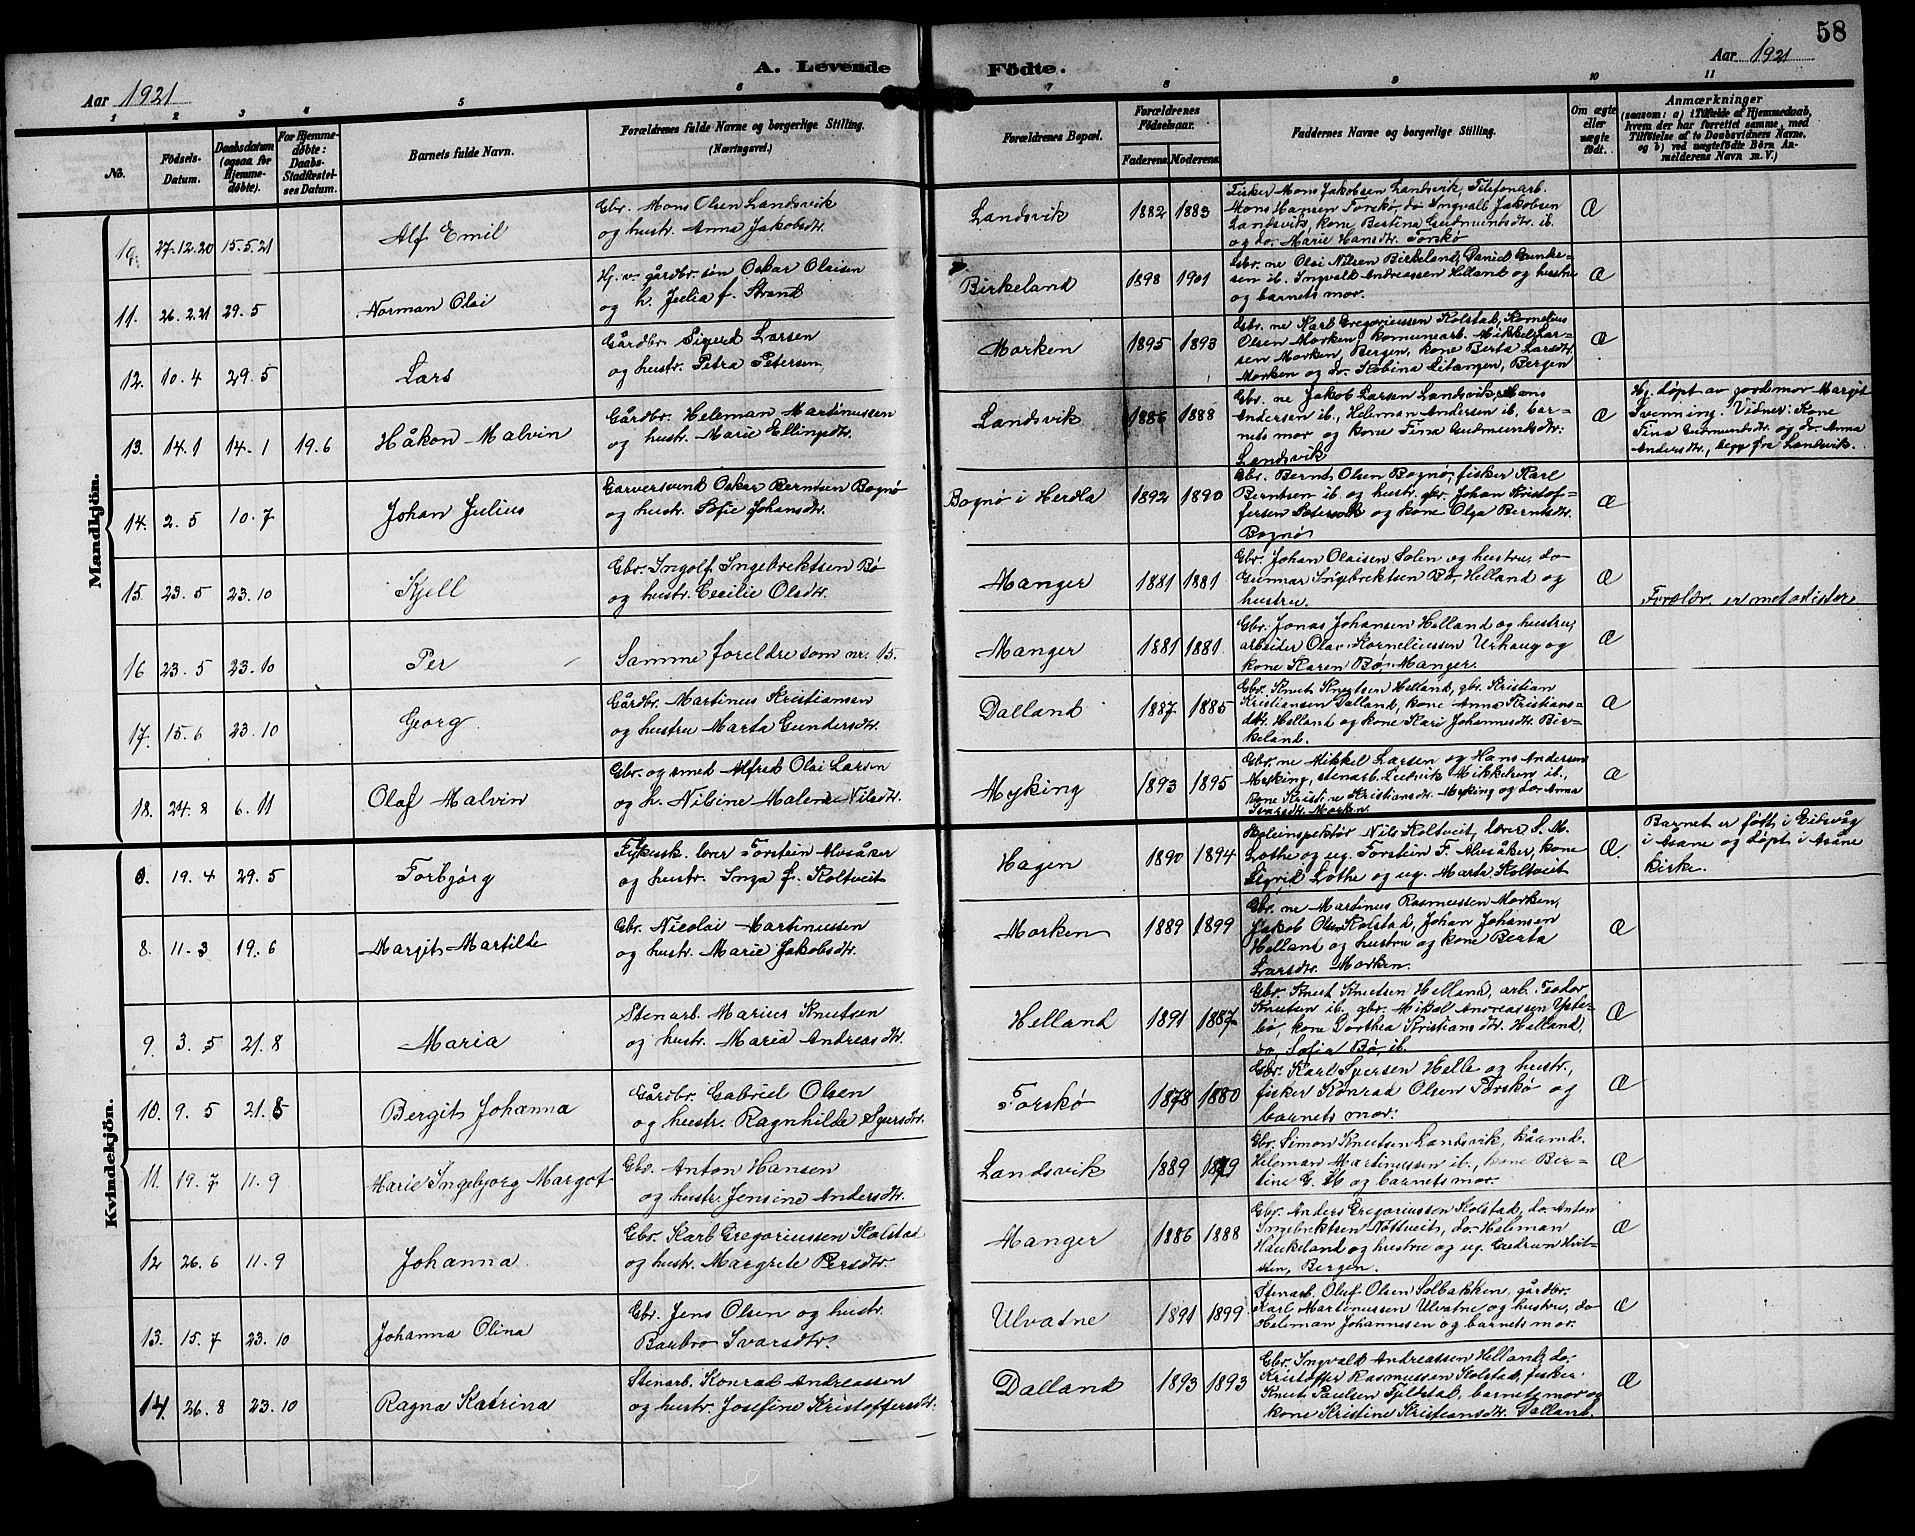 58
A. Levende Födte.
Aar 1921
Aar 1921
1 2 3 4 5 6 7 8 9 10 11
No.
Födsels-Datum.
Daabsdatum (ogsaa for Hjemmedöbte).
For Hjemmedöbte: Daabs-Stadfæstelses Datum.
Barnets fulde Navn.
Forældrenes fulde Navne og borgerlige Stilling.
(Næringsvei.)
Forældrenes Bopæl.
Forældrenes Födselsaar.
Faderens. Moderens.
Faddernes Navne og borgerlige Stilling.
Om ægte eller uægte födt.
Anmærkninger
(saasom: a) i Tilfælde af Hjemmedaab, hvem der har forrettet samme, med Tilföielse af to Daabsvidners Navne. og b) ved uægtefödte Börn Anmelderens Navn m. V.)
Mandkjön.
10. 27.12.20 15.5.21 Alf Emil
Gbr. Mons Olsen Landsvik
og hustr. Anna Jakobsdtr.
Landsvik 1882 1883
Fisker Mons Jakobsen Landsvik, Telefonarb.
Mons Hansen Torskø, do Ingvall Jakobsen
Landsvik, kone Bertina Gudmundsdtr. ib.
og do. Marie Hansdtr. Torskø
Æ
11. 26.2.21 29.5 Norman Olai
Hj. v. gårdbr. søn Oskar Olaisen
og h. Julia f. Strand
Birkeland 1898 1901
Gbr. ne Olai Nilsen Birkeland, Daniel
sen ib. Ingvald Andreassen Helland og hustru
og barnets mor.
Æ
12. 10.4 29.5 Lars
Gårdbr. Sigurd Larsen
og hustr. Petra Petersen
Morken 1895 1893
Gbr. ne Karl Gregoriussen Kolstad, Kornelius
Olsen Morken, komunearb. Mikkel Lar-
sen Morken, Bergen, kone Berta Larsdtr.
Morken og do. Bergen
Æ
13. 14.1 14.1 19.6 Håkon Malvin
Gårdbr. Heleman Martinussen
og hustr. Marie Ellingsdtr.
Landsvik 1886 1888
Gbr. ne Jakob Larsen Landsvik, Hans
Andersen ib., Heleman Andersen ib. bar-
nets mor og kone Tina Gudmundsdtr.
Landsvik
Æ
Hj. døpt av jordemor Margit
Svenning. Vidner: Kone
Tina Gudmundsdtr. og do. Anna
Andersdtr., begge fra Landsvik.
14. 2.5 10.7 Johan Julius
Garversvend Oskar Berntsen Bognø
og hustr. Sofie Johansdtr.
Bognø i Herdla 1892 1890
Gbr. Bernt Olsen Bognø, fisker Karl
Berntsen ib. og hustr. gbr. Johan Kristof-
fersen og kone Olga Berntsdtr.
Bognø
Æ
15. 23.5 23.10 Kjell
Gbr. Ingolf Ingebrektsen Bø
og hustr. Cecilie Olsdtr.
Manger 1881 1881
Gbr. Johan Olaisen Solen og hustru, do
Gunnar Ingebrektsen Bø, Helland og
hustru.
Æ
Forældr. er metodister
16 23.5 23.10 Per
Samme foreldre som nr. 15.
Manger 1881 1881.
Gbr. Jonas Johansen Helland og hustru,
arbeider Olav Korneliussen Urhaug og
kone Karen Bø, Manger.
Æ
17. 15.6 23.10 Georg
Gårdbr. Martinus Kristiansen
og hustru Marta Gundersdtr.
Dalland 1887 1885
Gbr. Knut Knutsen Helland, gbr. Kristian
Kristiansen Dalland, kone Anna Kristians-
dtr. Helland og kone Kari Johannesdtr. Bir-
keland.
Æ
18. 24.8 6.11 Olaf Malvin
Gbr. og smed Alfred Olai Larsen
og h. Nilsine Malene Nilsdtr.
Myking 1893 1895
Gbr. ne Mikkel Larsen og Hans Andersen
Myking, stenarb. Ludvik Mikkelsen ib.,
kone Kristine Kristiansdtr. Myking og do. Anna
Ivarsdtr. Morken
Æ
Kvindekjön.
19.4 29.5 Torbjørg
Fylkessk. lærer Torstein Alvsåker
og hustr. Inga f. Koltveit
Hagen 1890 1894
Skoleinspektør Nils Koltveit, lærer S. M.
Lothe og ug. Torstein T. Alvsåker, kone
Sigrid Lothe og ug. Marta Koltveit
Æ.
Barnet er født i Eidsvåg
i Åsane og døpt i Åsane
kirke.
8. 11.3 19.6 Margit Martilde
Gbr. Nicolai Martinussen
og hustr. Marie Jakobsdtr.
Morken 1889 1899
Gbr. ne Martinus Rasmussen Morken,
Jakob Olsen Kolstad, Johan Johansen
Helland og hustru og kone Berta
Larsdtr. Morken.
Æ
9. 3.5 21.8 Maria
Stenarb. Marius Knutsen
og hustr. Maria Andreasdtr.
Helland 1891 1887
Gbr. Knut Knutsen Helland, arb. Teodor
Knutsen ib. gbr. Mikal Andreassen Yste-
bø, kone Dorthea Kristiansdtr. Helland,
do, Sofia Bø, ib.
Æ
10. 9.5 21.8 Bergit Johanna
Gårdbr. Gabriel Olsen
og hustr. Ragnhilde Sjursdtr.
Torskø 1878 1880
Gbr. Karl Sjursen Helle og hustr.,
fisker Konrad Olsen Torskø og
barnets mor.
Æ
11. 19.7 11.9 Marie Ingebjorg Margot
Gbr. Anton Hansen
og hustr. Jensine Andersdtr.
Landsvik 1889
Gbr. Simon Knutsen Landsvik,
Heleman Martinussen ib., kone Ber-
tine G. og barnets mor.
Æ
12 26.6 11.9 Johanna
Gbr. Karl Gregoriussen Kolstad
og hustr. Margrete Persdtr.
Manger 1886 1888
Gbr. Anders Gregoriussen Kolstad, do. Anton
Ingebrektsen Nøttveit, do. Helman
Haukeland og hustru og ug. Gudrun Hvit-
sten, Bergen.
Æ
13. 15.7 23.10 Johanna Olina
Gbr. Jens Olsen og hustr.
Barbro Ivarsdtr.
Ulvatne 1891 1899
Stenarb. Oluf Olsen Solbakken, gårdbr.
Karl Martinussen Ulvatne og hustru, do
Heleman Johannesen og barnets mor.
Æ
14. 26.8 23.10 Ragna Katrina
Stenarb. Konrad Andreassen
og hustr. Josefine Kristoffersdtr.
Dalland 1893 1893
Gbr. Ingvald Andreassen Helland, do.
Kristoffer Rasmussen Kolstad, fisker
Knut Paulsen Fjeldstad, barnets mor og
kone Kristine Kristiansdtr. Dalland.
Æ